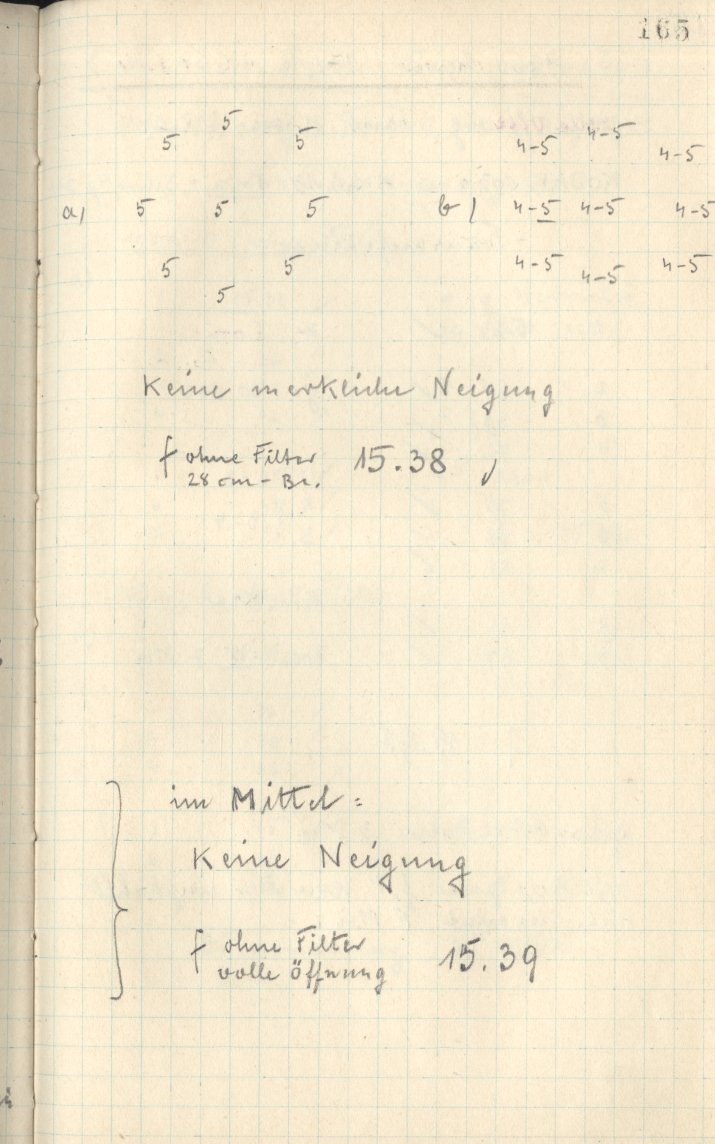 165
5 5 5 4-5 4-5 4-5
a) 5 5 5 b) 4-5 4-5 4-5
5 5 5 4-5 4-5 4-5
Keine merkliche Neigung
f ohne Filter 15.38
28 cm - Bl.
im Mittel:
Keine Neigung
f ohne Filter 15.39
volle Öffnung